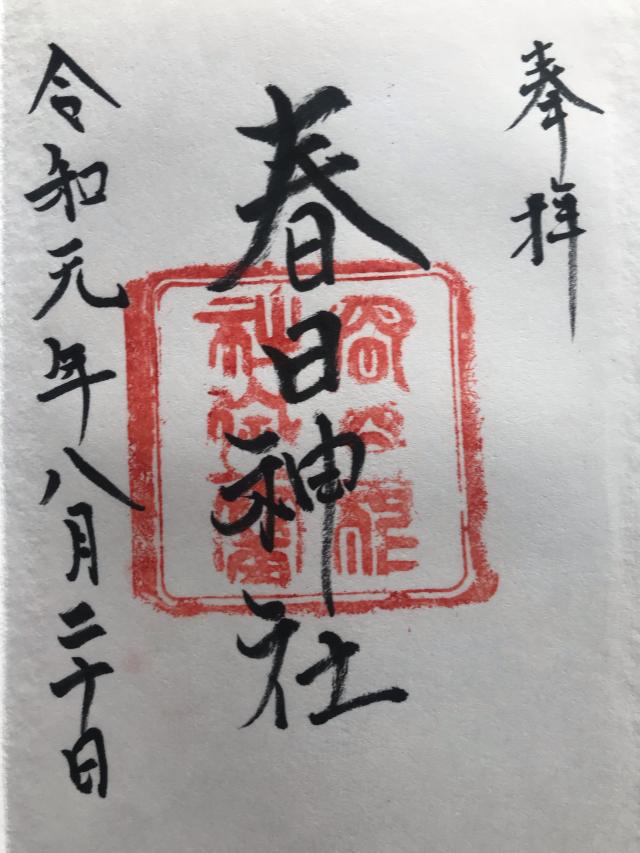 奉拝
春日神社
令和元年八月二十日